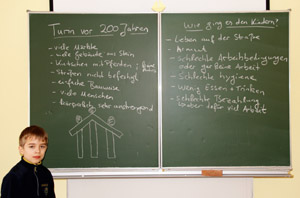 Turm vor 200 Jahren
- viele Märkte
- viele Gebäude aus Stein
- Kutschen mit Pferden
- Straßen nicht befestigt
- einfache Bauweise
- viele Menschen
- körperlich sehr anstrengend
Wie ging es den Kindern?
- Leben auf der Straße
- Armut
- schlechte Arbeitsbedingungen
oder gar keine Arbeit
- schlechte Hygiene
- wenig Essen + Trinken
- schlechte Bezahlung
dafür viel Arbeit